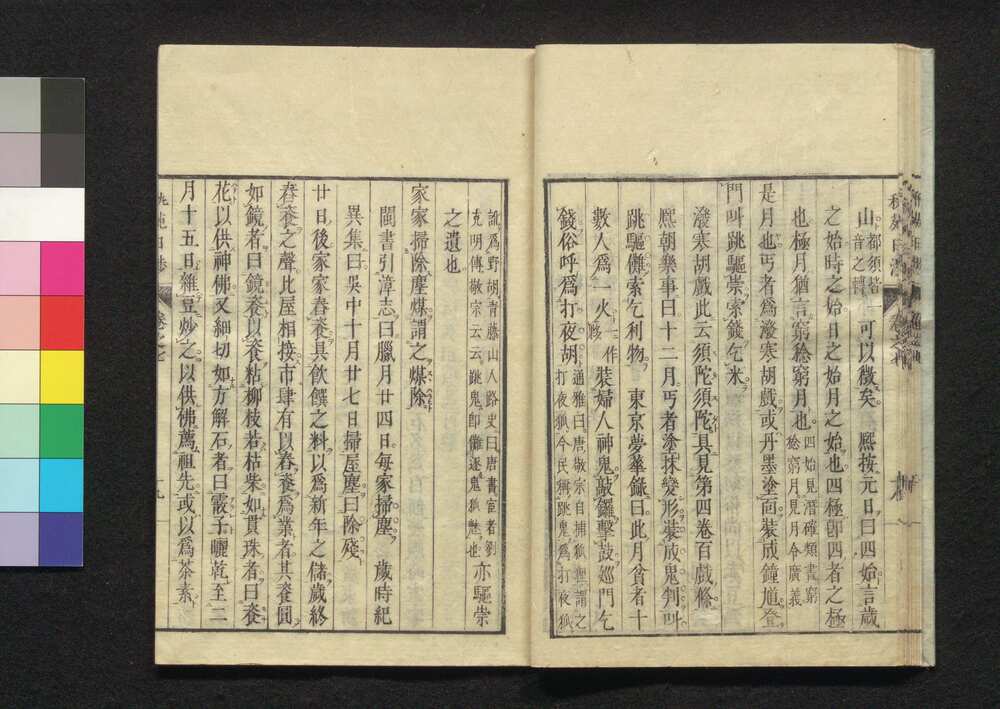 山都須者音之轉可以徵矣 熙按元日曰四始言歲
之始時之始日之始月之始也四極卽四者之極
也極月猶言窮稔窮月也四始見潛確類書窮稔窮月見月令廣義
是月也丐者爲潑寒胡戲或丹墨塗面裝成鐘馗登
門叫跳驅祟索錢乞米
潑寒胡戲此云須陀須陀具見第四卷百戲條
熙朝樂事曰十二月丐者塗抹變形裝成鬼判叫
跳驅儺索乞利物 東京夢華錄曰此月貧者十
數人爲一火一作夥裝婦人神鬼敲鑼擊鼓巡門乞
錢俗呼爲打夜胡通雅曰唐敬宗自捕狐狸謂之打夜狐今民稱跳鬼爲打夜狐
訛爲野胡青藤山人路史曰唐書宦者劉克明傳敬宗云云跳鬼卽儺逐鬼狐魅也亦驅祟
之遺也
家家掃除塵煤謂之煤除
閩書引漳志曰臘月廿四日每家掃塵 歲時紀
異集曰吳中十月廿七日掃屋塵曰除殘
廿日後家家舂餈具飮饌之料以爲新年之儲歲終
舂餈之聲比屋相接市肆有以舂餈爲業者其餈圓
如鏡者曰鏡餈以餈粘柳枝若枯柴如貫珠者曰餈
花以供神佛又細切如方解石者曰霰子曬乾至二
月十五日雜豆炒之以供佛薦祖先或以爲茶素